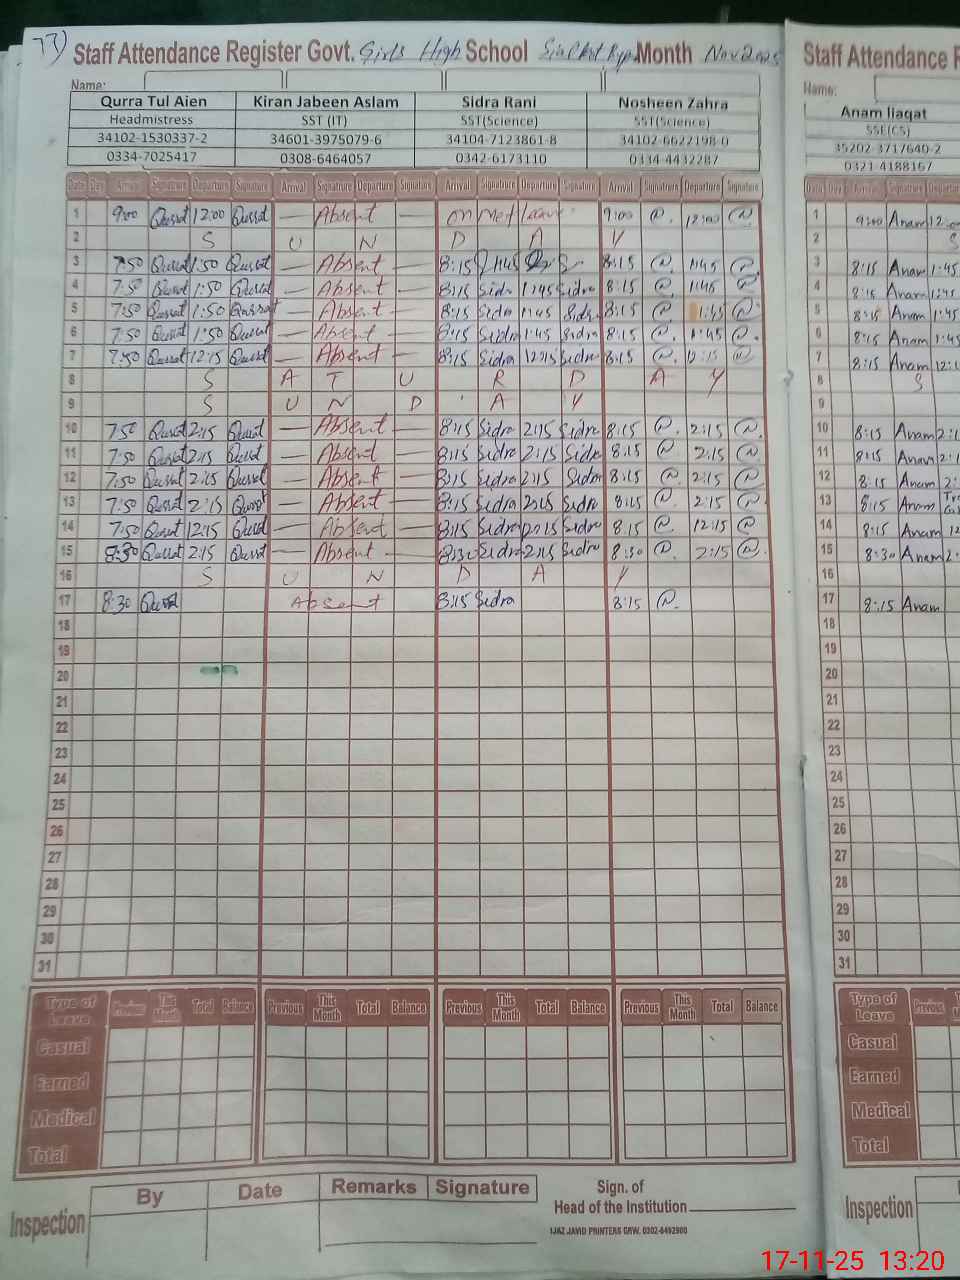 Staff Attendance Register Govt. Girls High School Sialkot Month Nov 2025 Staff Attendance R
Name: Name:
Qurra Tul Aien Kiran Jabeen Aslam Sidra Rani Nosheen Zahra Anam liaqat
Headmistress SST (IT) SST(Science) SST(Science) SSE(CS)
34102-1530337-2 34601-3975079-6 34104-7123861-8 34102-6622198-0 35202-3717640-2
0334-7025417 0308-6464057 0342-6173110 0334-4432287 0321-4188167
Date Day Arrival Signature Departure Signature Arrival Signature Departure Signature Arrival Signature Departure Signature Arrival Signature Departure Signature Date Day Arrival Signature Departure
1 9:00 12:00 — Absent — on Met leave 9:00 12:00 1 9:00 Anam
2 S U N D A Y 2 S
3 7:50 1:50 — Absent — 8:15 8:15 1:45 3 8:15 Anam 1:45
4 7:50 1:50 — Absent — 8:15 Sidra 1:45 Sidra 8:15 1:45 4 8:15 Anam 1:45
5 7:50 1:50 — Absent — 8:15 Sidra 1:45 Sidra 8:15 1:45 5 8:15 Anam 1:45
6 7:50 1:50 — Absent — 8:15 Sidra 1:45 Sidra 8:15 1:45 6 8:15 Anam 1:45
7 7:50 12:15 — Absent — 8:15 Sidra 12:15 Sidra 8:15 12:15 7 8:15 Anam
8 S A T U R D A Y 8 S
9 S U N D A Y 9
10 7:50 2:15 — Absent — 8:15 Sidra 2:15 Sidra 8:15 2:15 10 8:15 Anam
11 7:50 2:15 — Absent — 8:15 Sidra 2:15 Sidra 8:15 2:15 11 8:15 Anam
12 7:50 2:15 — Absent — 8:15 Sidra 2:15 Sidra 8:15 2:15 12 8:15 Anam
13 7:50 2:15 — Absent — 8:15 Sidra Sidra 8:15 2:15 13 8:15 Anam
14 7:50 12:15 — Absent — 8:15 Sidra 12:15 Sidra 8:15 12:15 14 8:15 Anam
15 8:30 2:15 — Absent — 8:30 Sidra 2:15 Sidra 8:30 2:15 15 8:30 Anam
16 S U N D A Y 16
17 8:30 Absent 8:15 Sidra 8:15 17 8:15 Anam
18 18
19 19
20 20
21 21
22 22
23 23
24 24
25 25
26 26
27 27
28 28
29 29
30 30
31 31
Type of Leave Previous This Month Total Balance Previous This Month Total Balance Previous This Month Total Balance Previous This Month Total Balance Type of Leave Previous
Casual Casual
Earned Earned
Medical Medical
Total Total
Inspection By Date Remarks Signature Sign. of Head of the Institution Inspection
IJAZ JAVID PRINTERS GRW. 0302-6492900
17-11-25 13:20